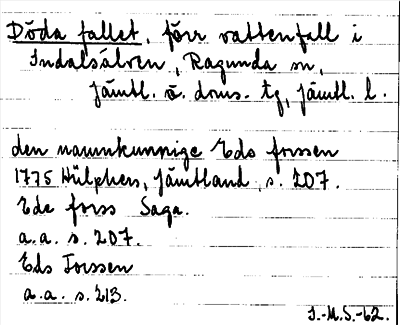 Döda fallet, förr vattenfall i
Indalsälven, Ragunda sn,
Jämtl. ö. doms. tg, Jämtl. l.
den namnkunnige Eds forssen
1775 Hülphers, Jämtland, s. 207.
Ede forss Saga.
a.a. s. 207.
Eds Forssen
a.a. s. 213.
I.-M.S.-62.